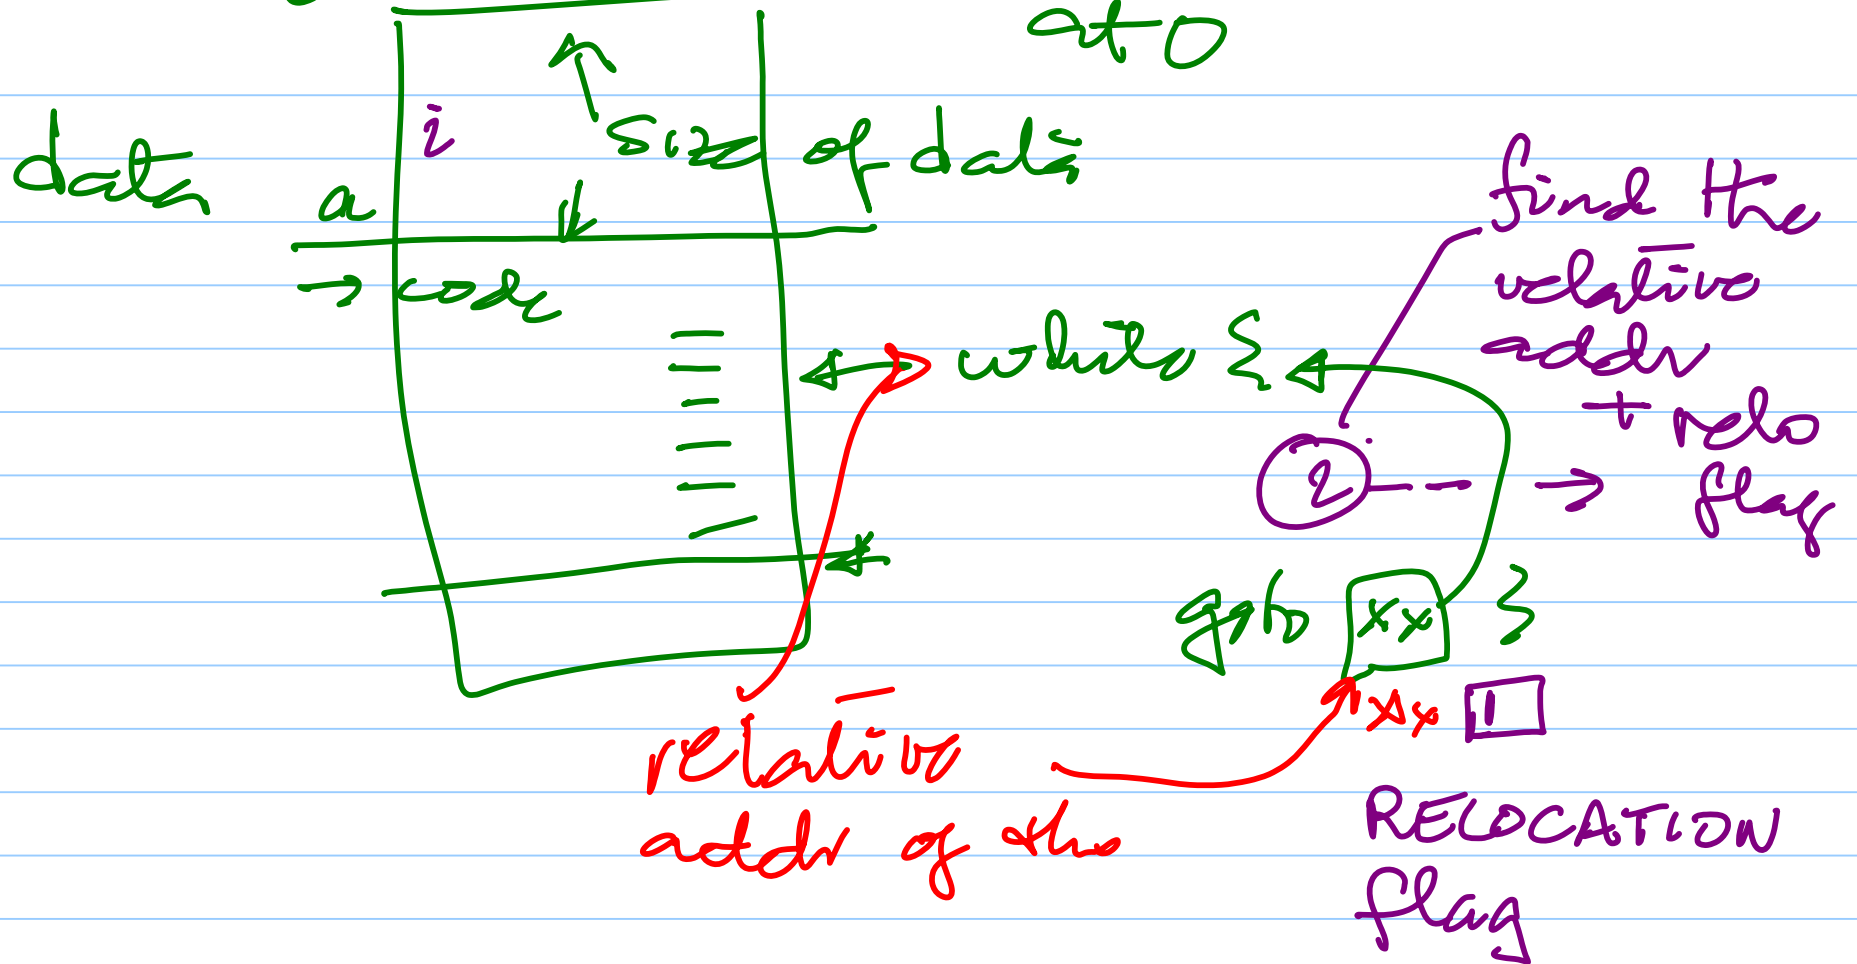 at 0
i
data
size of data
a
→ code
while {
find the
relative
addr
+ relo
flag
2
goto xx }
xx 1
relative
addr of the
RELOCATION
flag